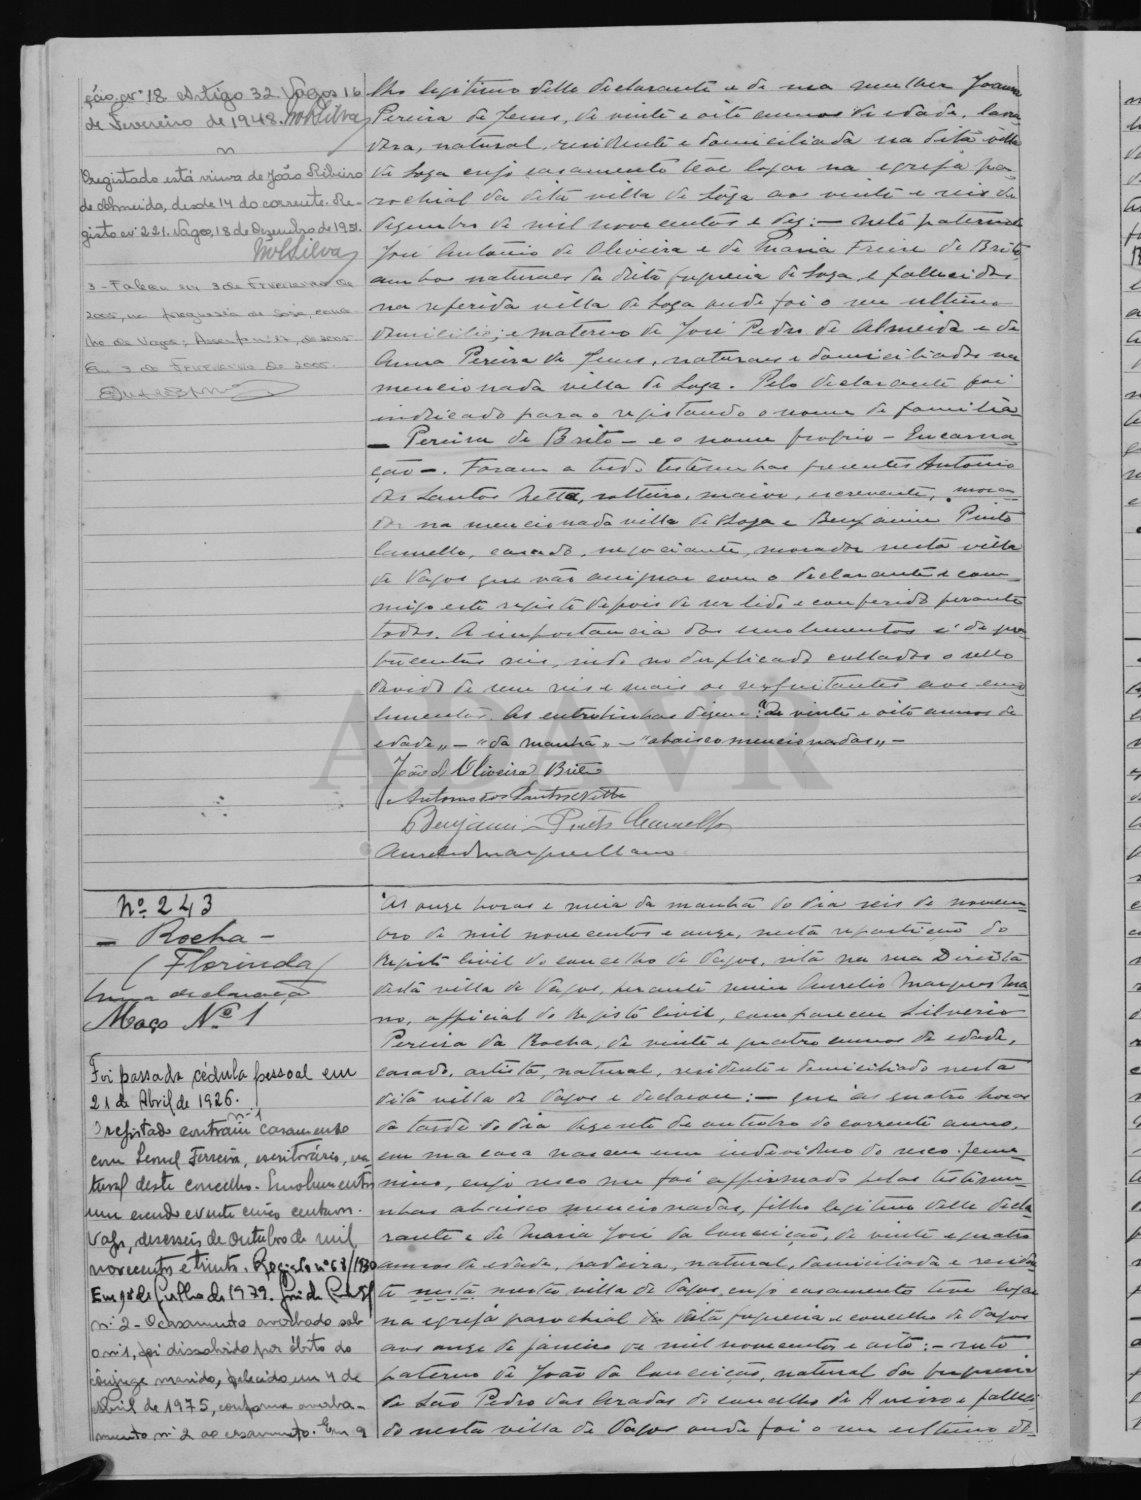 ção nº 18 Artigo 32. Vagos 16
de Fevereiro de 1948. MRSilva
O registado está viuva de João Ribeiro
de Almeida, desde 14 do corrente. Re-
gisto nº 221. Vagos, 18 de Dezembro de 1951.
MRSilva
3 - Faleceu em 3 de Fevereiro de
2005, na freguesia de Soza, conce-
lho de Vagos; Assento nº 17, de 2005
Em 3 de Fevereiro de 2005.
lho legitimo delle declarante e de sua mulher Joanna
Pereira de Jesus, de vinte e oito annos de edade, lavra
dora, natural, residente e domiciliada na dita villa
de Soza cujo casamento teve logar na egreja pa-
rochial da dita villa de Soza aos vinte e seis de
dezembro de mil nove centos e dez: — neto paterno de
José Antonio de Oliveira e de Maria Freire de Brito,
ambos naturaes da dita freguesia de Soza, e fallecidos
na referida villa de Soza onde foi o seu ultimo
domicilio; e materno de José Pedro de Almeida e de
Anna Pereira de Jesus, naturaes e domiciliados na
mencionada villa de Soza. Pelo declarante foi
indicado para o registando o nome de familia
— Pereira de Brito — e o nome proprio — Encarna-
ção —. Foram a tudo testemunhas presentes Antonio
dos Santos Netto, solteiro, maior, escrevente, mora-
dor na mencionada villa de Soza e Benjamim Pinto
Camello, casado, negociante, morador nesta villa
de Vagos que vão assignar com o declarante e com-
migo este registo depois de ser lido e conferido perante
todos. A importancia dos emolumentos é de
trezentos reis, indo no duplicado collados o sello
devido de cem reis e mais os respeitantes aos emo-
lumentos. As entrelinhas dizem: "de vinte e oito annos de
edade" — "da manhã" — "abaixo mencionadas" —
João d' Oliveira Brito
Antonio dos Santos Netto
Benjamim Pinto Camello
Aurelio Marques Mano
Nº 243
— Rocha —
(Florinda)
uma declaração
Maço Nº 1
Foi passada cédula pessoal em
21 de Abril de 1926.
nº 1
O registado contraiu casamento
com Leonel Ferreira, escriturário, na-
tural deste concelho. Emolumentos
um escudo e vinte cinco centavos.
Vagos, dezesseis de Outubro de mil
novecentos e trinta. Registo nº 68/1930
Em 9 de Julho de 1979.
nº 2 - O casamento averbado sob
o nº 1, foi dissolvido por óbito do
cônjuge marido, falecido em 4 de
Abril de 1975, conforme averba-
mento nº 2 ao casamento. Em 9
As onze horas e meia da manhã do dia seis de novem-
bro de mil nove centos e onze, nesta repartição do
Registo civil do concelho de Vagos, sita na rua Direita
desta villa de Vagos, perante mim Aurelio Marques Ma-
no, official do Registo civil, compareceu Silverio
Pereira da Rocha, de vinte e quatro annos de edade,
casado, artista, natural, residente e domiciliado nesta
dita villa de Vagos e declarou: — que ás quatro horas
da tarde do dia de outubro do corrente anno,
em sua casa nasceu um individuo do sexo femi-
nino, cujo sexo me foi affirmado pelas testemu-
nhas abaixo mencionadas, filho legitimo delle decla-
rante e de Maria José da Conceição, de vinte e quatro
annos de edade, padeira, natural, domiciliada e residen
te nesta mesta villa de Vagos, cujo casamento teve logar
na egreja parochial da dita freguesia e concelho de Vagos
aos onze de janeiro de mil novecentos e oito: — neto
paterno de João da Conceição, natural da freguesia
de São Pedro das Aradas do concelho de Aveiro e falleci
do nesta villa de Vagos onde foi o seu ultimo do-
ADAVR